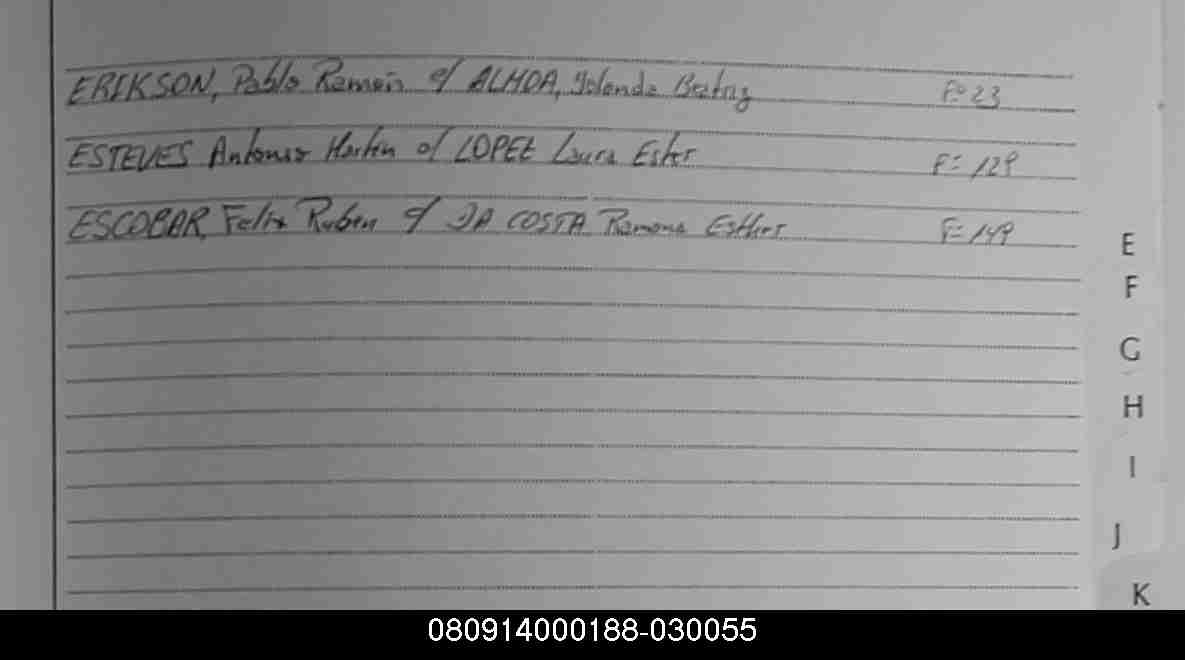 ERIKSON, Pablo Ramón c/ ALMOA, Yolanda Beatriz Fº 23
ESTEVES Antonio Martin c/ LOPEZ Laura Ester Fº 129
ESCOBAR, Felix Ruben c/ DA COSTA Ramona Esther Fº 149
E
F
G
H
I
J
K
080914000188-030055